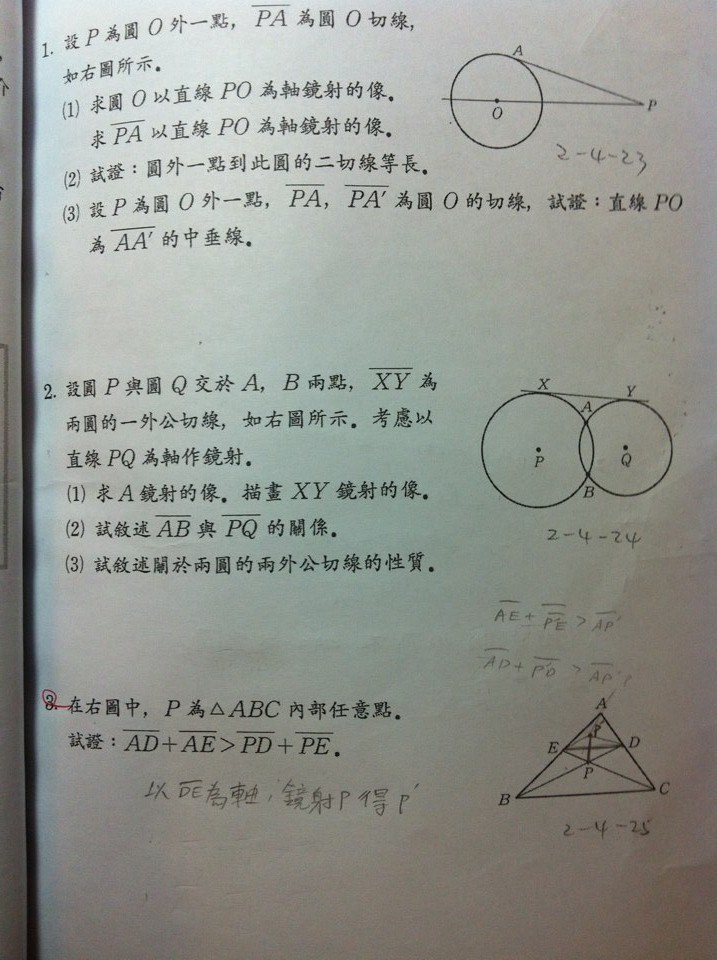 1. 設 P 為圓 O 外一點，PA 為圓 O 切線，
如右圖所示。
(1) 求圓 O 以直線 PO 為軸鏡射的像。
求 PA 以直線 PO 為軸鏡射的像。
(2) 試證：圓外一點到此圓的二切線等長。
(3) 設 P 為圓 O 外一點，PA，PA′ 為圓 O 的切線，試證：直線 PO
為 AA′ 的中垂線。
A
O
P
2-4-23
2. 設圓 P 與圓 Q 交於 A，B 兩點，XY 為
兩圓的一外公切線，如右圖所示。考慮以
直線 PQ 為軸作鏡射。
(1) 求 A 鏡射的像。描畫 XY 鏡射的像。
(2) 試敘述 AB 與 PQ 的關係。
(3) 試敘述關於兩圓的兩外公切線的性質。
X
Y
A
P
Q
B
2-4-24
AE+P′E>AP′
AD+P′D>AP′
3. 在右圖中，P 為△ABC 內部任意點。
試證：AD+AE>PD+PE。
以 DE 為軸，鏡射 P 得 P′
A
P′
E
D
P
B
C
2-4-25